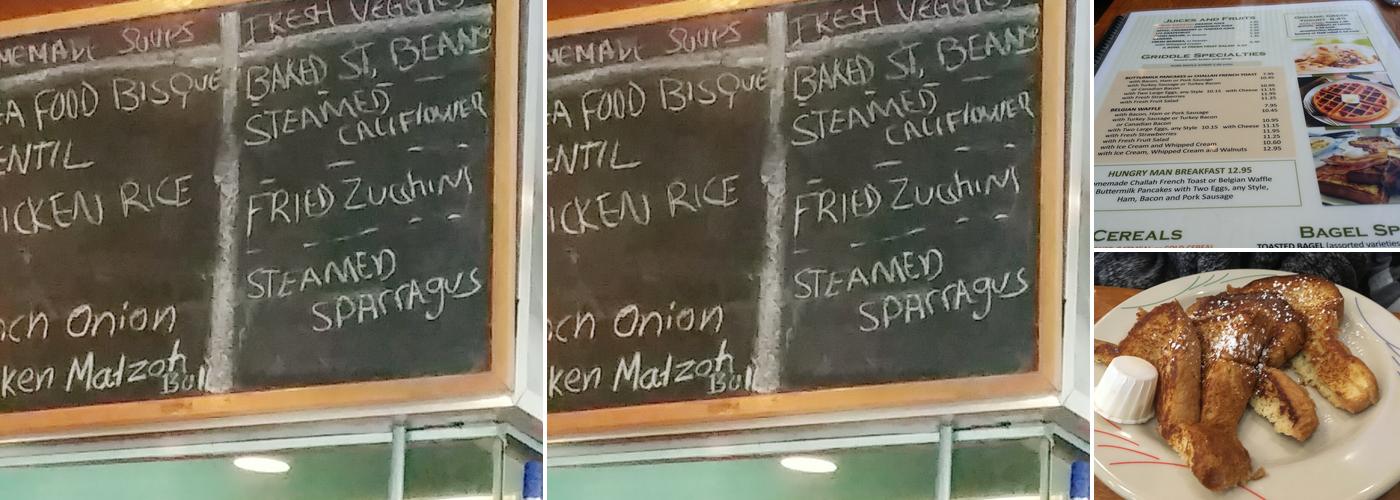 FRESH VEGGIES
SEA FOOD BISQUE
BAKED ST, BEANS
STEAMED
CALIFLOWER
RICE
FRIED ZUCCHINI
STEAMED
SPARRAGUS
Onion
Matzoh
Ball
FRESH VEGGIES
FOOD BISQUE
BAKED ST, BEANS
STEAMED
CALIFLOWER
RICE
FRIED ZUCCHINI
STEAMED
SPARRAGUS
Onion
Matzoh
JUICES AND FRUITS
GRIDDLE SPECIALTIES
BUTTERMILK PANCAKES or CHALLAH FRENCH TOAST 7.95
with Bacon, Ham or Pork Sausage 10.45
with Turkey Sausage or Turkey Bacon
or Canadian Bacon 10.95
with Two Large Eggs, any Style 10.15 with Cheese 11.15
with Fresh Strawberries 11.95
with Fresh Fruit Salad 11.25
BELGIAN WAFFLE 7.95
with Bacon, Ham or Pork Sausage 10.45
with Turkey Sausage or Turkey Bacon
or Canadian Bacon 10.95
with Two Large Eggs, any Style 10.15 with Cheese 11.15
with Fresh Strawberries 11.95
with Fresh Fruit Salad 11.25
with Ice Cream and Whipped Cream 10.60
with Ice Cream, Whipped Cream and Walnuts 12.95
HUNGRY MAN BREAKFAST 12.95
Challah French Toast or Belgian Waffle
Buttermilk Pancakes with Two Eggs, any Style,
Ham, Bacon and Pork Sausage
CEREALS
BAGEL SP
TOASTED BAGEL (assorted varieties